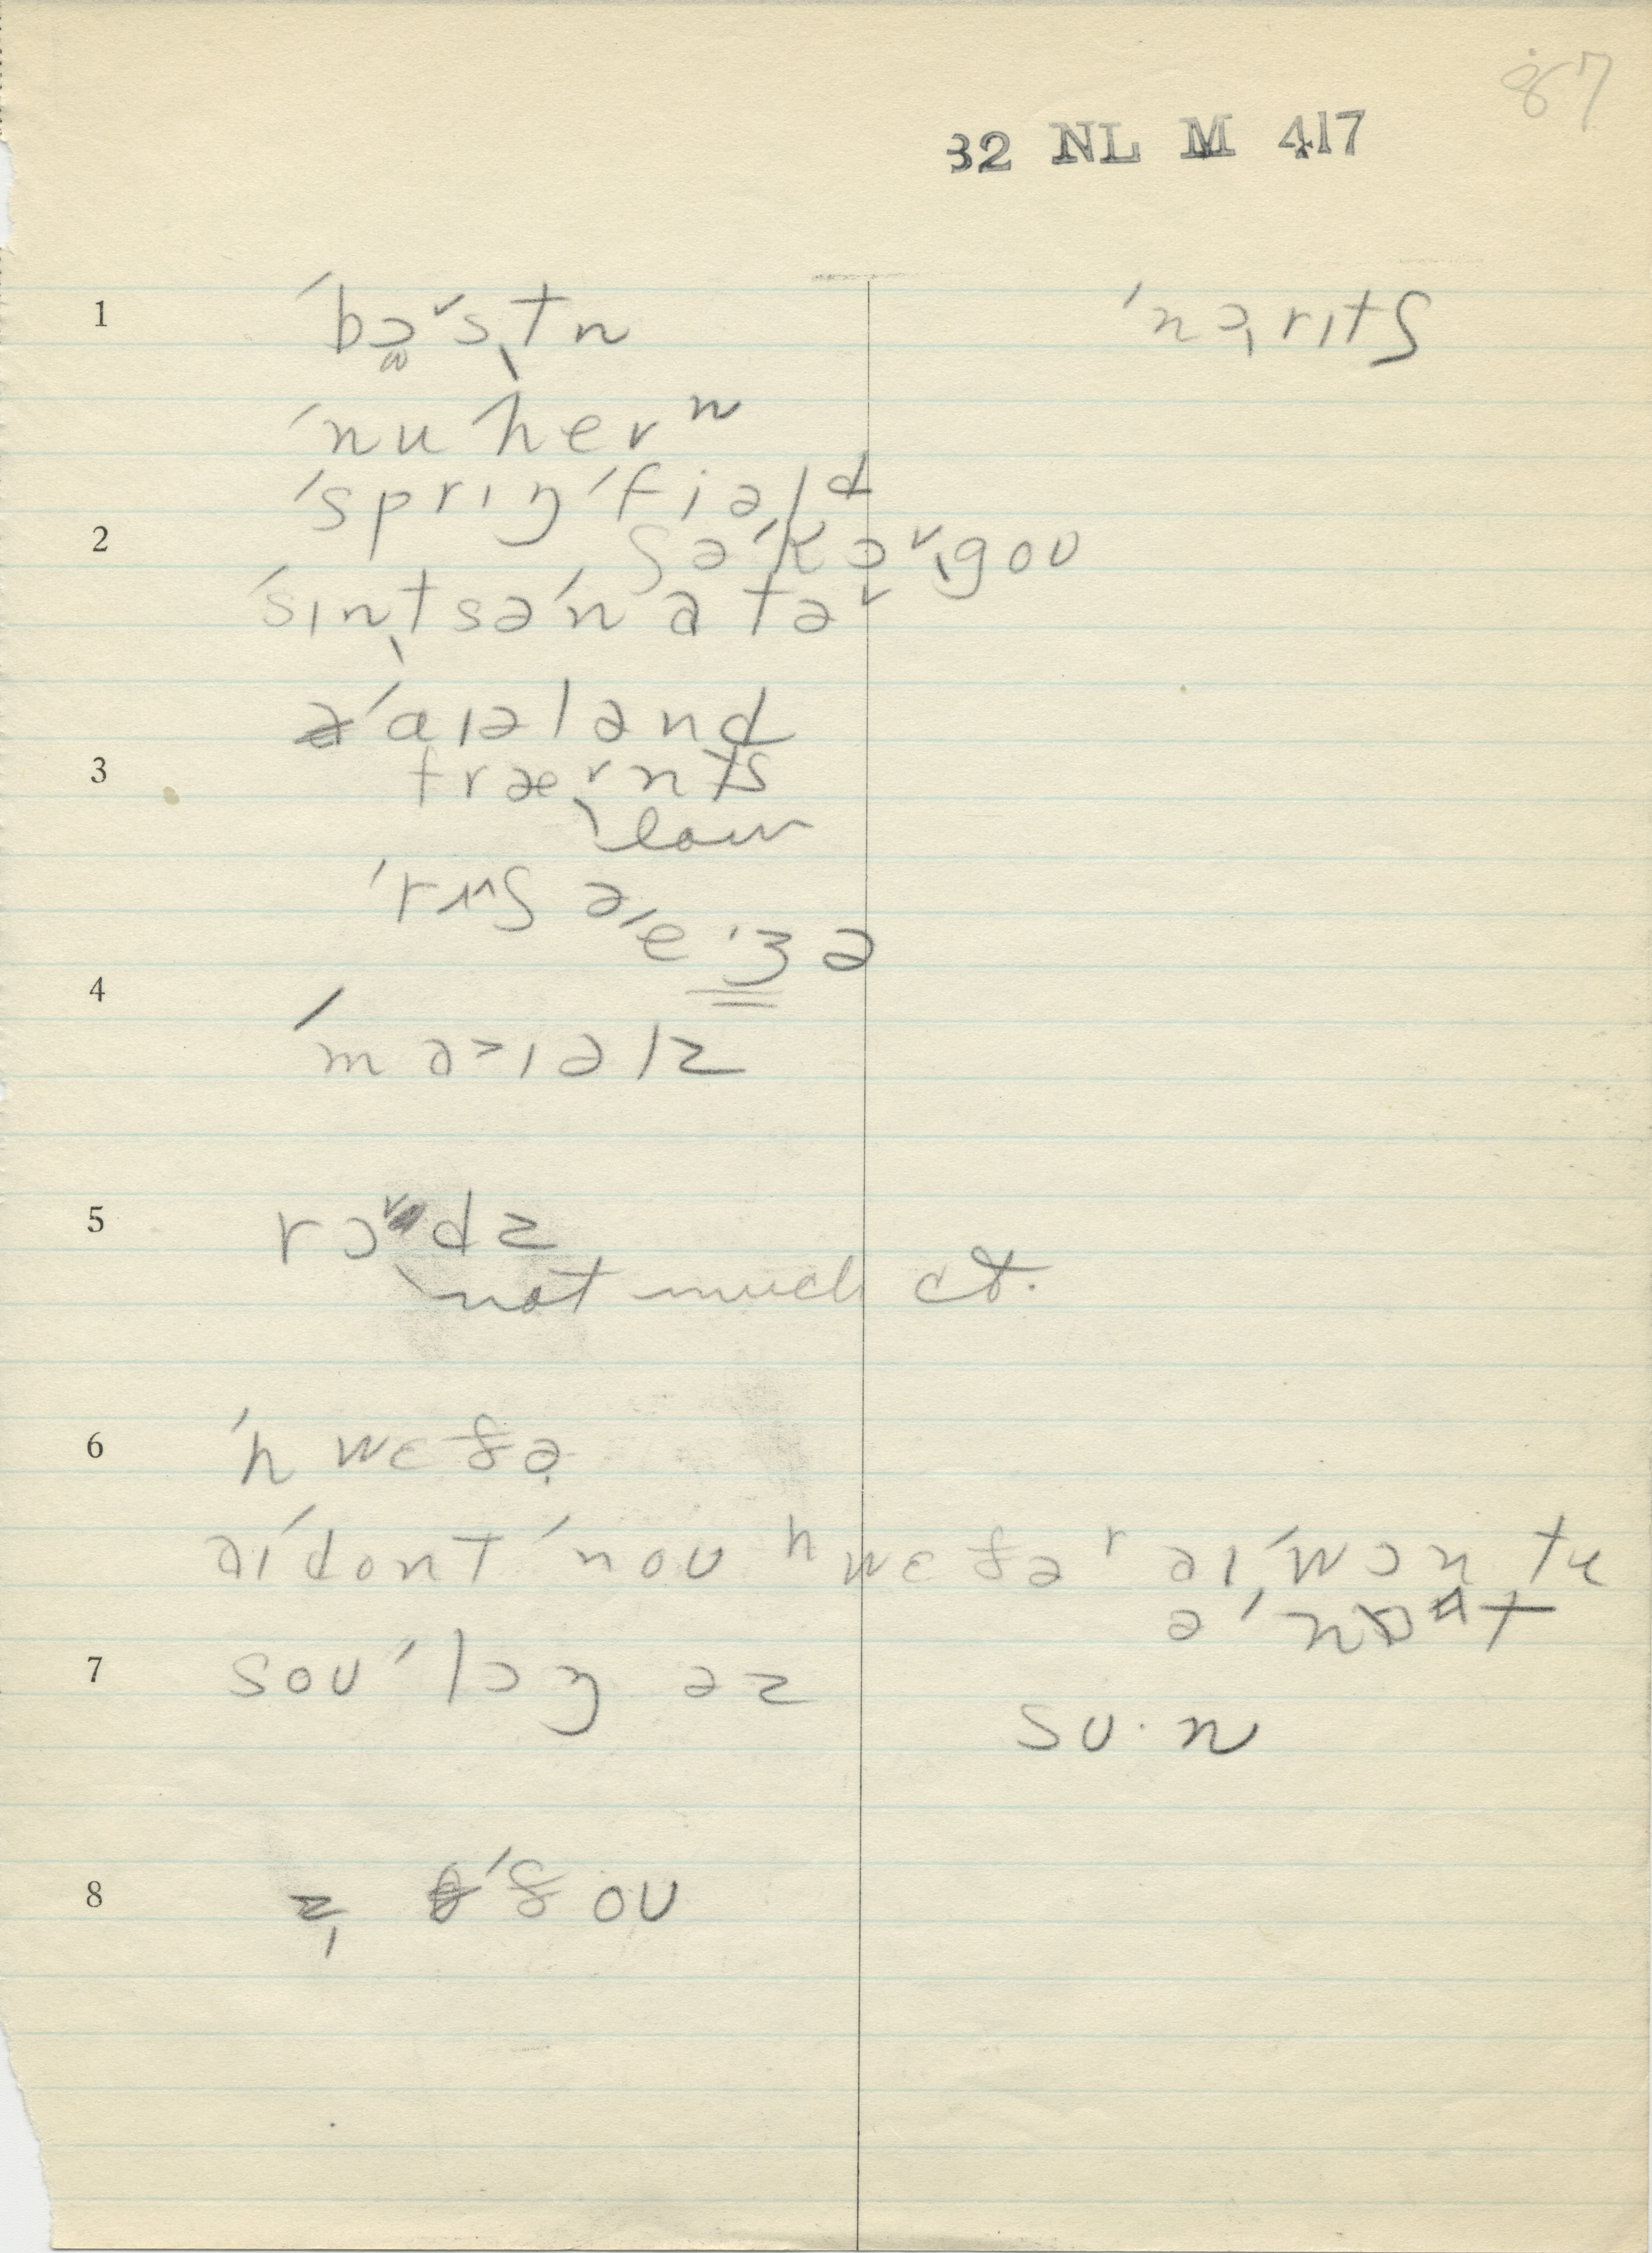 87
32 NL M 417
1 ˈbɔˇstn ˈnərɪtʃ
ˈnuˈherⁿ
ˈsprɪŋˈfiəld
2 ʃəˈkɔˇgoʊ
ˈsɪntsəˈnatəˇ
ˈaɪələnd
3 fræˇnts
low
ˈrʌʃə
ˈeʒə
4 ˈmɔ>ɪəlz
5 rɔˇdz
not much ct.
6 ˈhwɛðə
əɪˈdontˈnoʊ hwɛðəʳ əɪˈwɔn tu
əˈnɒt
7 soʊˈlɔŋ əz
sʊ·n
8 ˈðoʊ